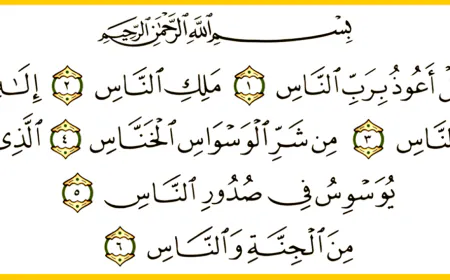 بِسْمِ ٱللَّهِ ٱلرَّحْمَٰنِ ٱلرَّحِيمِ
لْ أَعُوذُ بِرَبِّ ٱلنَّاسِ ١ مَلِكِ ٱلنَّاسِ ٢ إِلَٰ
لنَّاسِ ٣ مِن شَرِّ ٱلْوَسْوَاسِ ٱلْخَنَّاسِ ٤ ٱلَّذِى
يُوَسْوِسُ فِى صُدُورِ ٱلنَّاسِ ٥
مِنَ ٱلْجِنَّةِ وَٱلنَّاسِ ٦